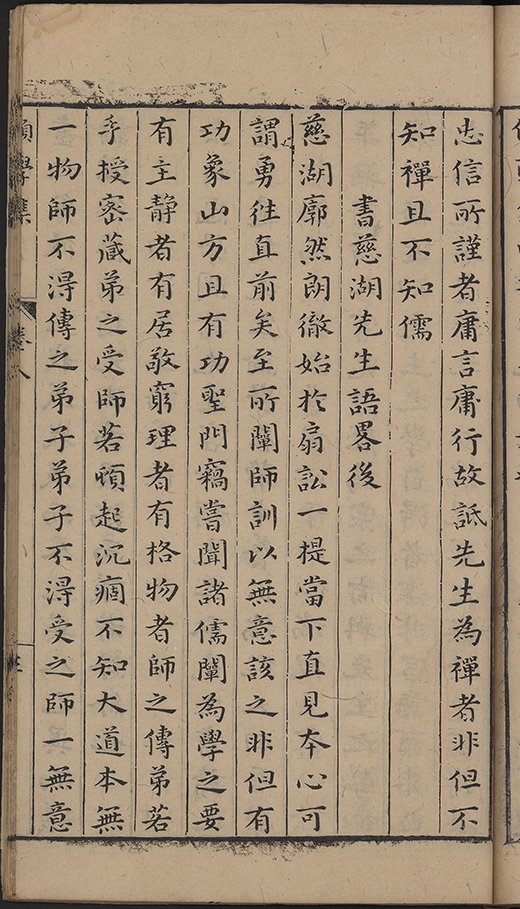 忠信所謹者庸言庸行故詆先生為禪者非但不
知禪且不知儒
書慈湖先生語畧後
慈湖廓然朗徹始扵扇訟一提當下直見夲心可
謂勇徃直前矣至所闡師訓以無意該之非但有
功象山方且有功聖門竊嘗聞諸儒闡為學之要
有主静者有居敬窮理者有格物者師之傳弟若
手授密蔵弟之受師若頓起沉痼不知大道本無
一物師不淂傳之弟子弟子不淂受之師一無意
學集
卷八